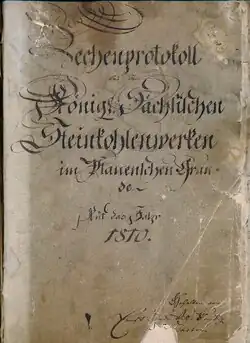 Zechenprotokoll
Königl. Sächsischen
Steinkohlenwerken
im Plauenschen Grun-
de
Auf das Jahr
1810.